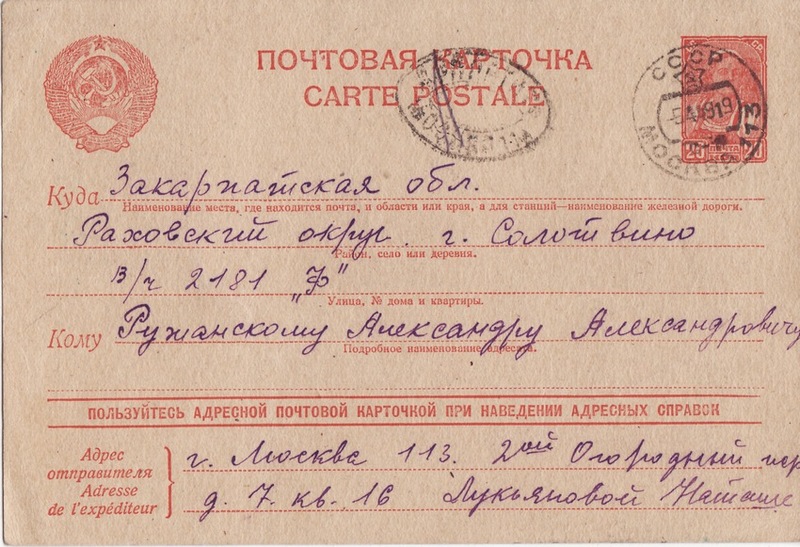 ПОЧТОВАЯ КАРТОЧКА
CARTE POSTALE
СССР
МОСКВА 113
20 ПОЧТА 20
Куда Закарпатская обл.
Наименование места, где находится почта, и области или края, а для станций—наименование железной дороги.
Раховский округ. г. Солотвино
Район, село или деревня.
в/ч 2181 "Ф"
Улица, № дома и квартиры.
Кому Ружанскому Александру Александровичу
Подробное наименование адресата.
ПОЛЬЗУЙТЕСЬ АДРЕСНОЙ ПОЧТОВОЙ КАРТОЧКОЙ ПРИ НАВЕДЕНИИ АДРЕСНЫХ СПРАВОК
Адрес отправителя
Adresse de l'expéditeur
г. Москва 113. 2ой Огородный пер
д. 7 кв. 16 Лукьяновой Наташе